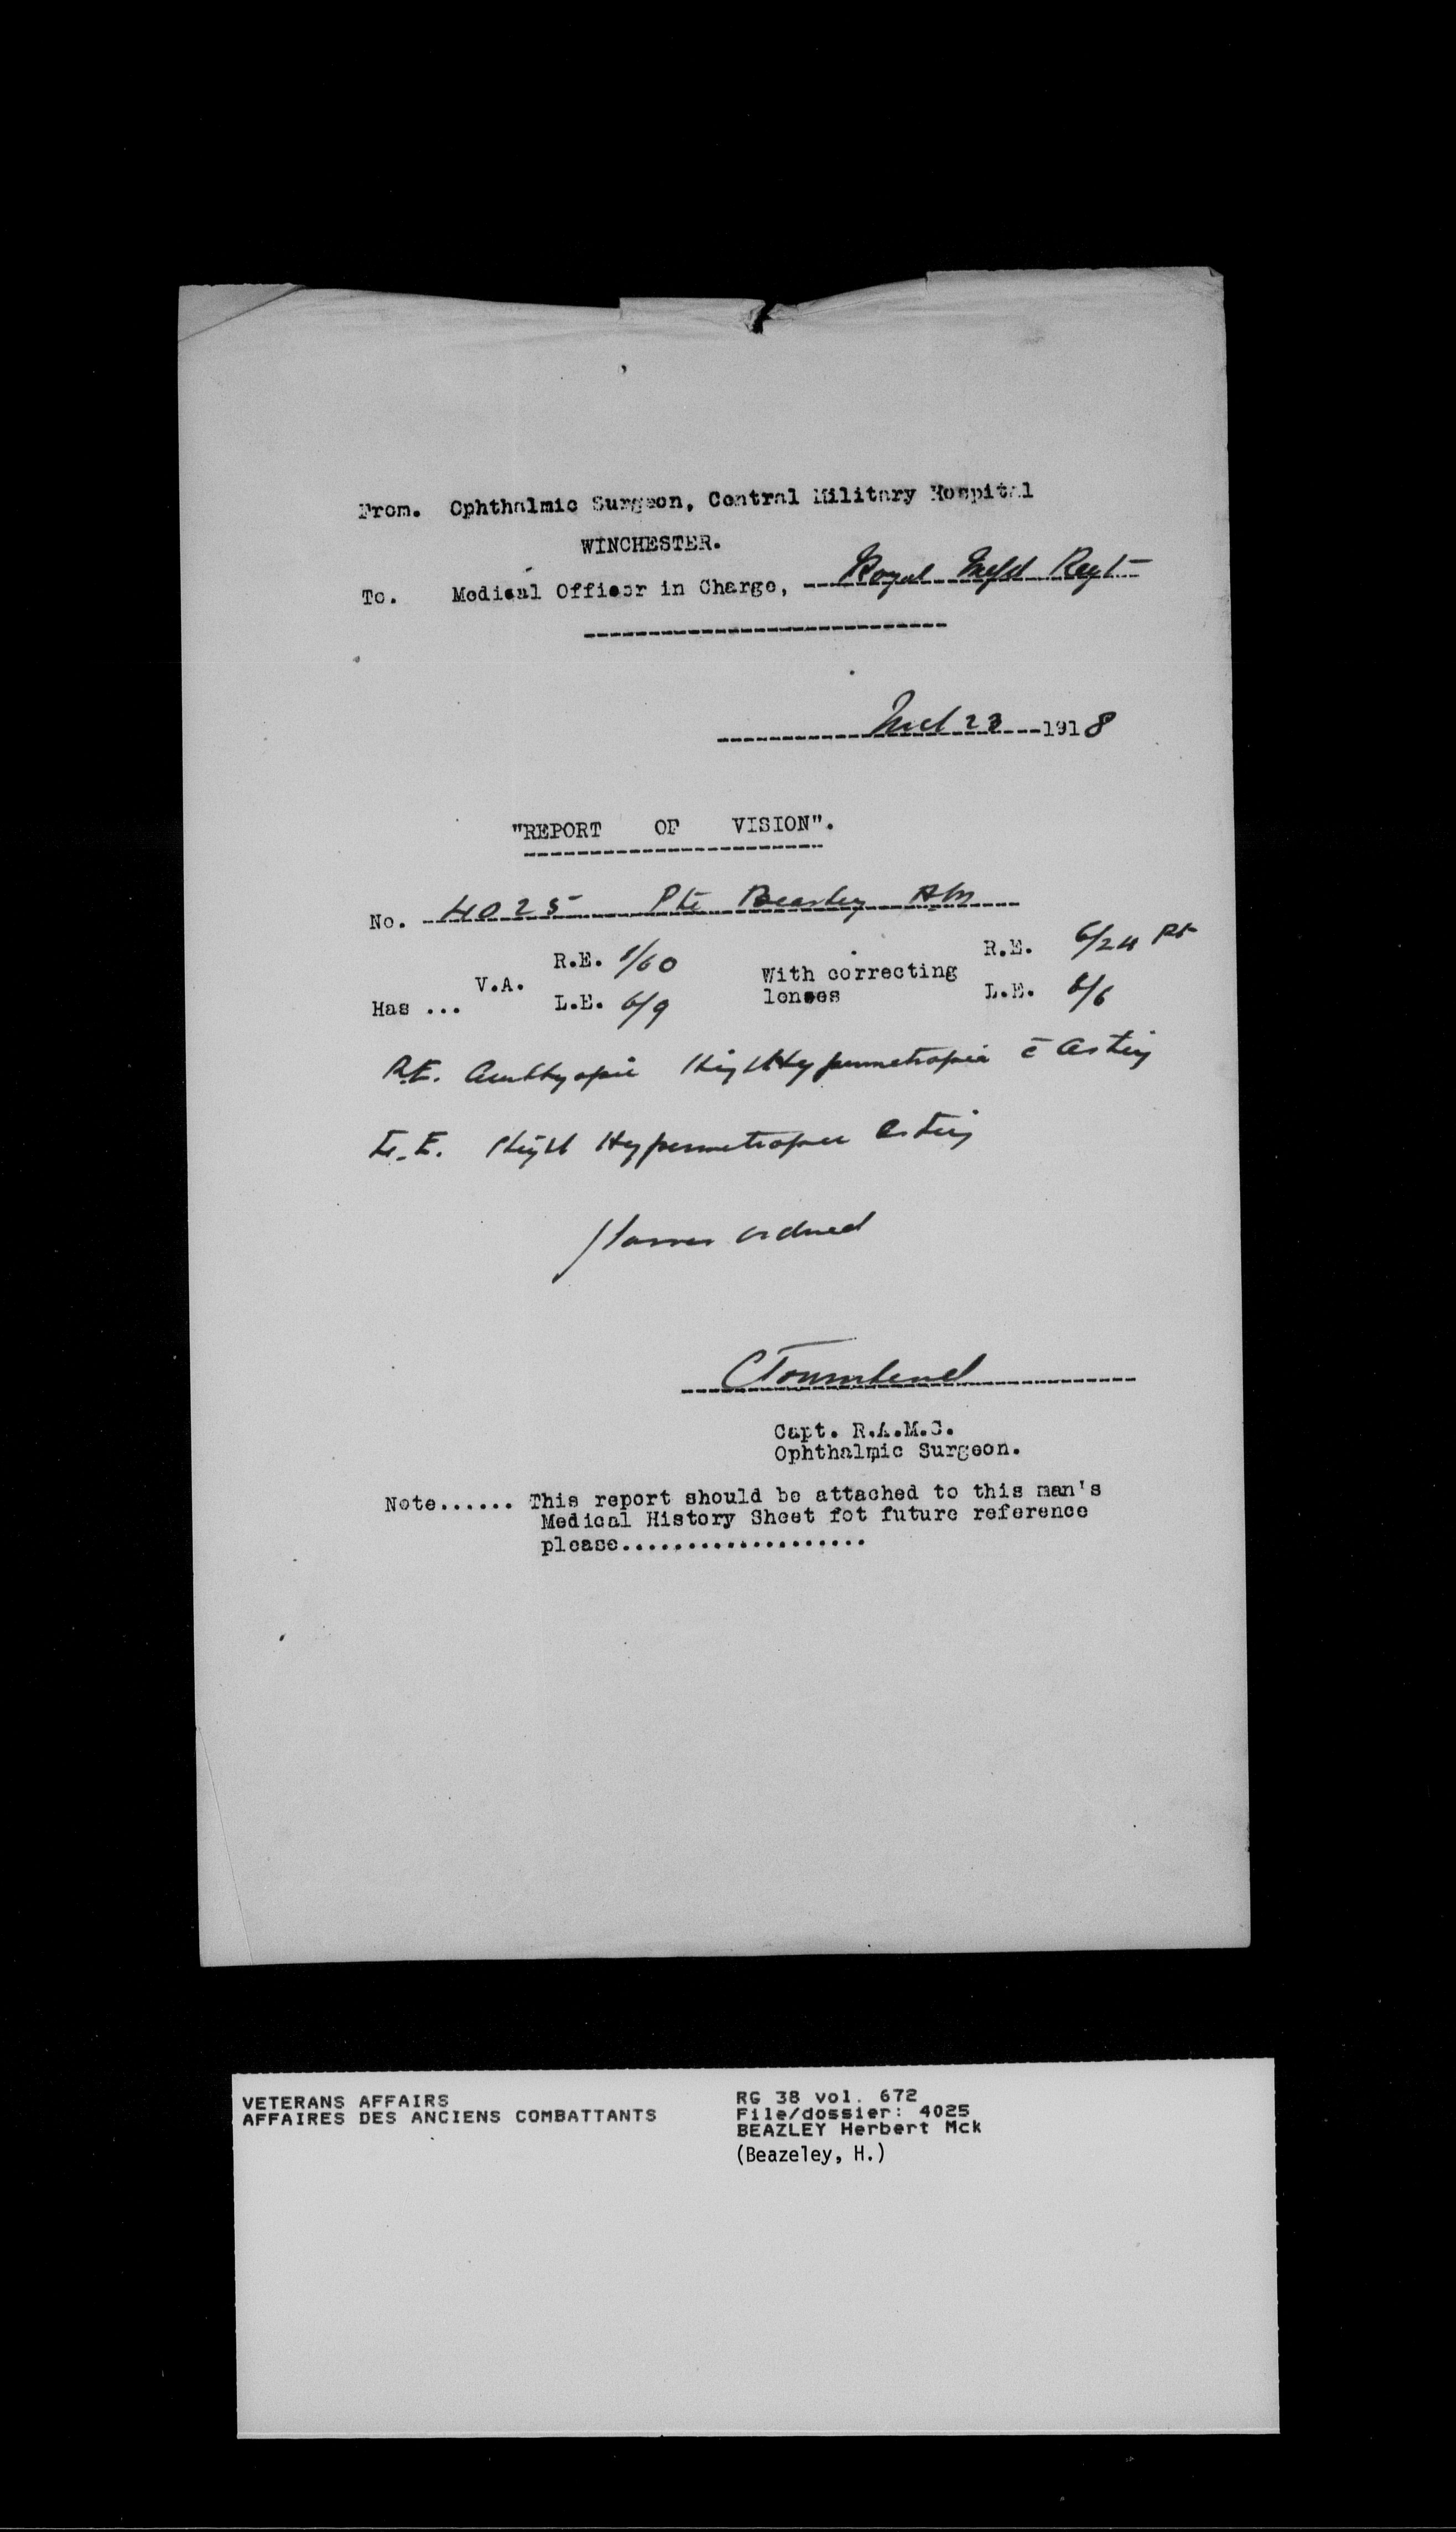 From. Ophthalmic Surgeon, Central Military Hospital
WINCHESTER.
To. Medical Officer in Charge, Royal Nfld Regt
1918
"REPORT OF VISION".
No. 4025 Pte Beazley
R.E. 1/60 R.E. 6/24 pt
Has ... V.A. With correcting
L.E. 6/9 lenses L.E. 6/6
R.E. Amblyopia High Hypermetropia c̄ Astig
L.E. Slight Hypermetropic Astig
Glasses ordered
C Townsend
Capt. R.A.M.C.
Ophthalmic Surgeon.
Note...... This report should be attached to this man's
Medical History Sheet fot future reference
please...................
VETERANS AFFAIRS
AFFAIRES DES ANCIENS COMBATTANTS
RG 38 vol. 672
File/dossier: 4025
BEAZLEY Herbert Mck
(Beazeley, H.)